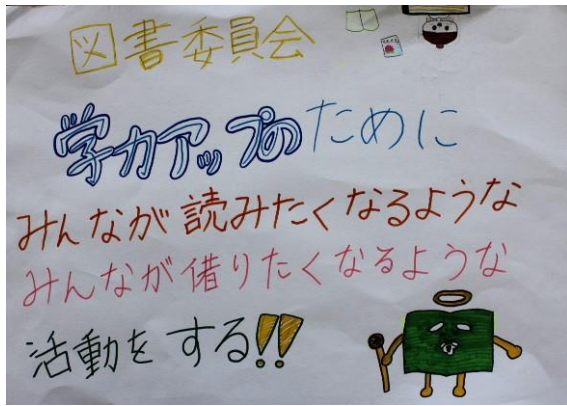 図書委員会
学力アップのために
みんなが読みたくなるような
みんなが借りたくなるような
活動をする!!